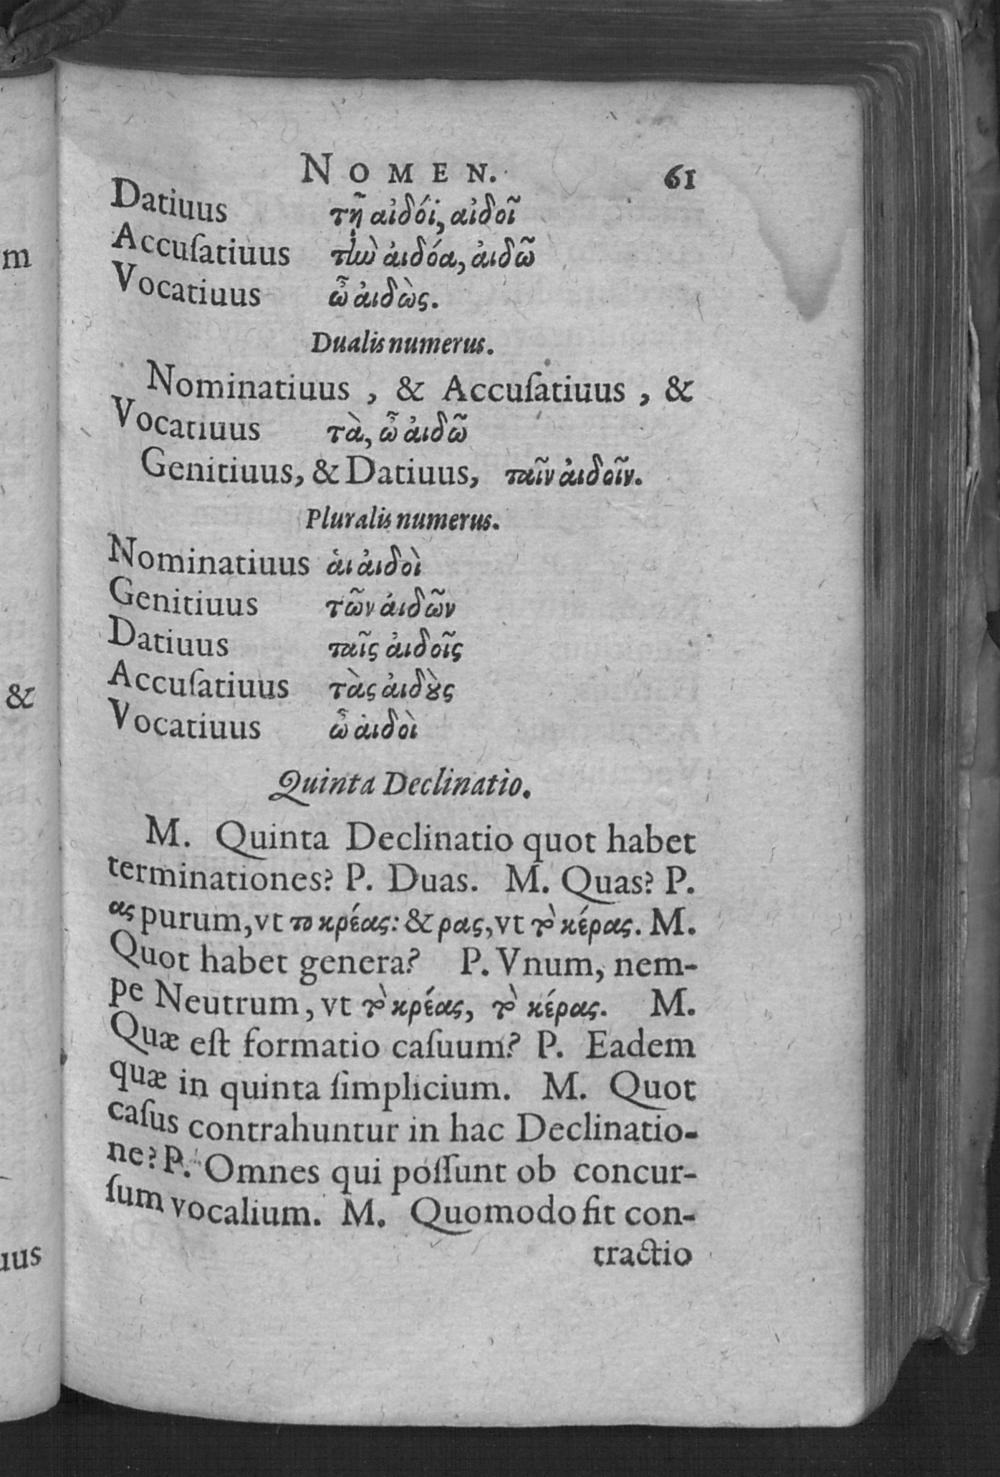 NOMEN. 61
Datiuus τῇ αἰδόϊ, αἰδοῖ
Accuſatiuus τὴν ἀιδόα, ἀιδῶ
Vocatiuus ὦ ἀιδὼς.
Dualis numerus.
Nominatiuus, & Accuſatiuus, &
Vocatiuus τὰ, ὦ ἀιδῶ
Genitiuus, & Datiuus, ταῖν ἀιδοῖν.
Pluralis numerus.
Nominatiuus ἁι ἀιδοὶ
Genitiuus τῶν ἀιδῶν
Datiuus ταῖς ἀιδοῖς
Accuſatiuus τὰς ἀιδοὺς
Vocatiuus ὦ ἀιδοὶ
Quinta Declinatio.
M. Quinta Declinatio quot habet
terminationes? P. Duas. M. Quas? P.
ας purum, vt το κρέας: & ρας, vt τὸ κέρας. M.
Quot habet genera? P. Vnum, nem-
pe Neutrum, vt τὸ κρέας, τὸ κέρας. M.
Quæ eſt formatio caſuum? P. Eadem
quæ in quinta ſimplicium. M. Quot
caſus contrahuntur in hac Declinatio-
ne? P. Omnes qui poſſunt ob concur-
ſum vocalium. M. Quomodo fit con-
tractio
m
&
uus